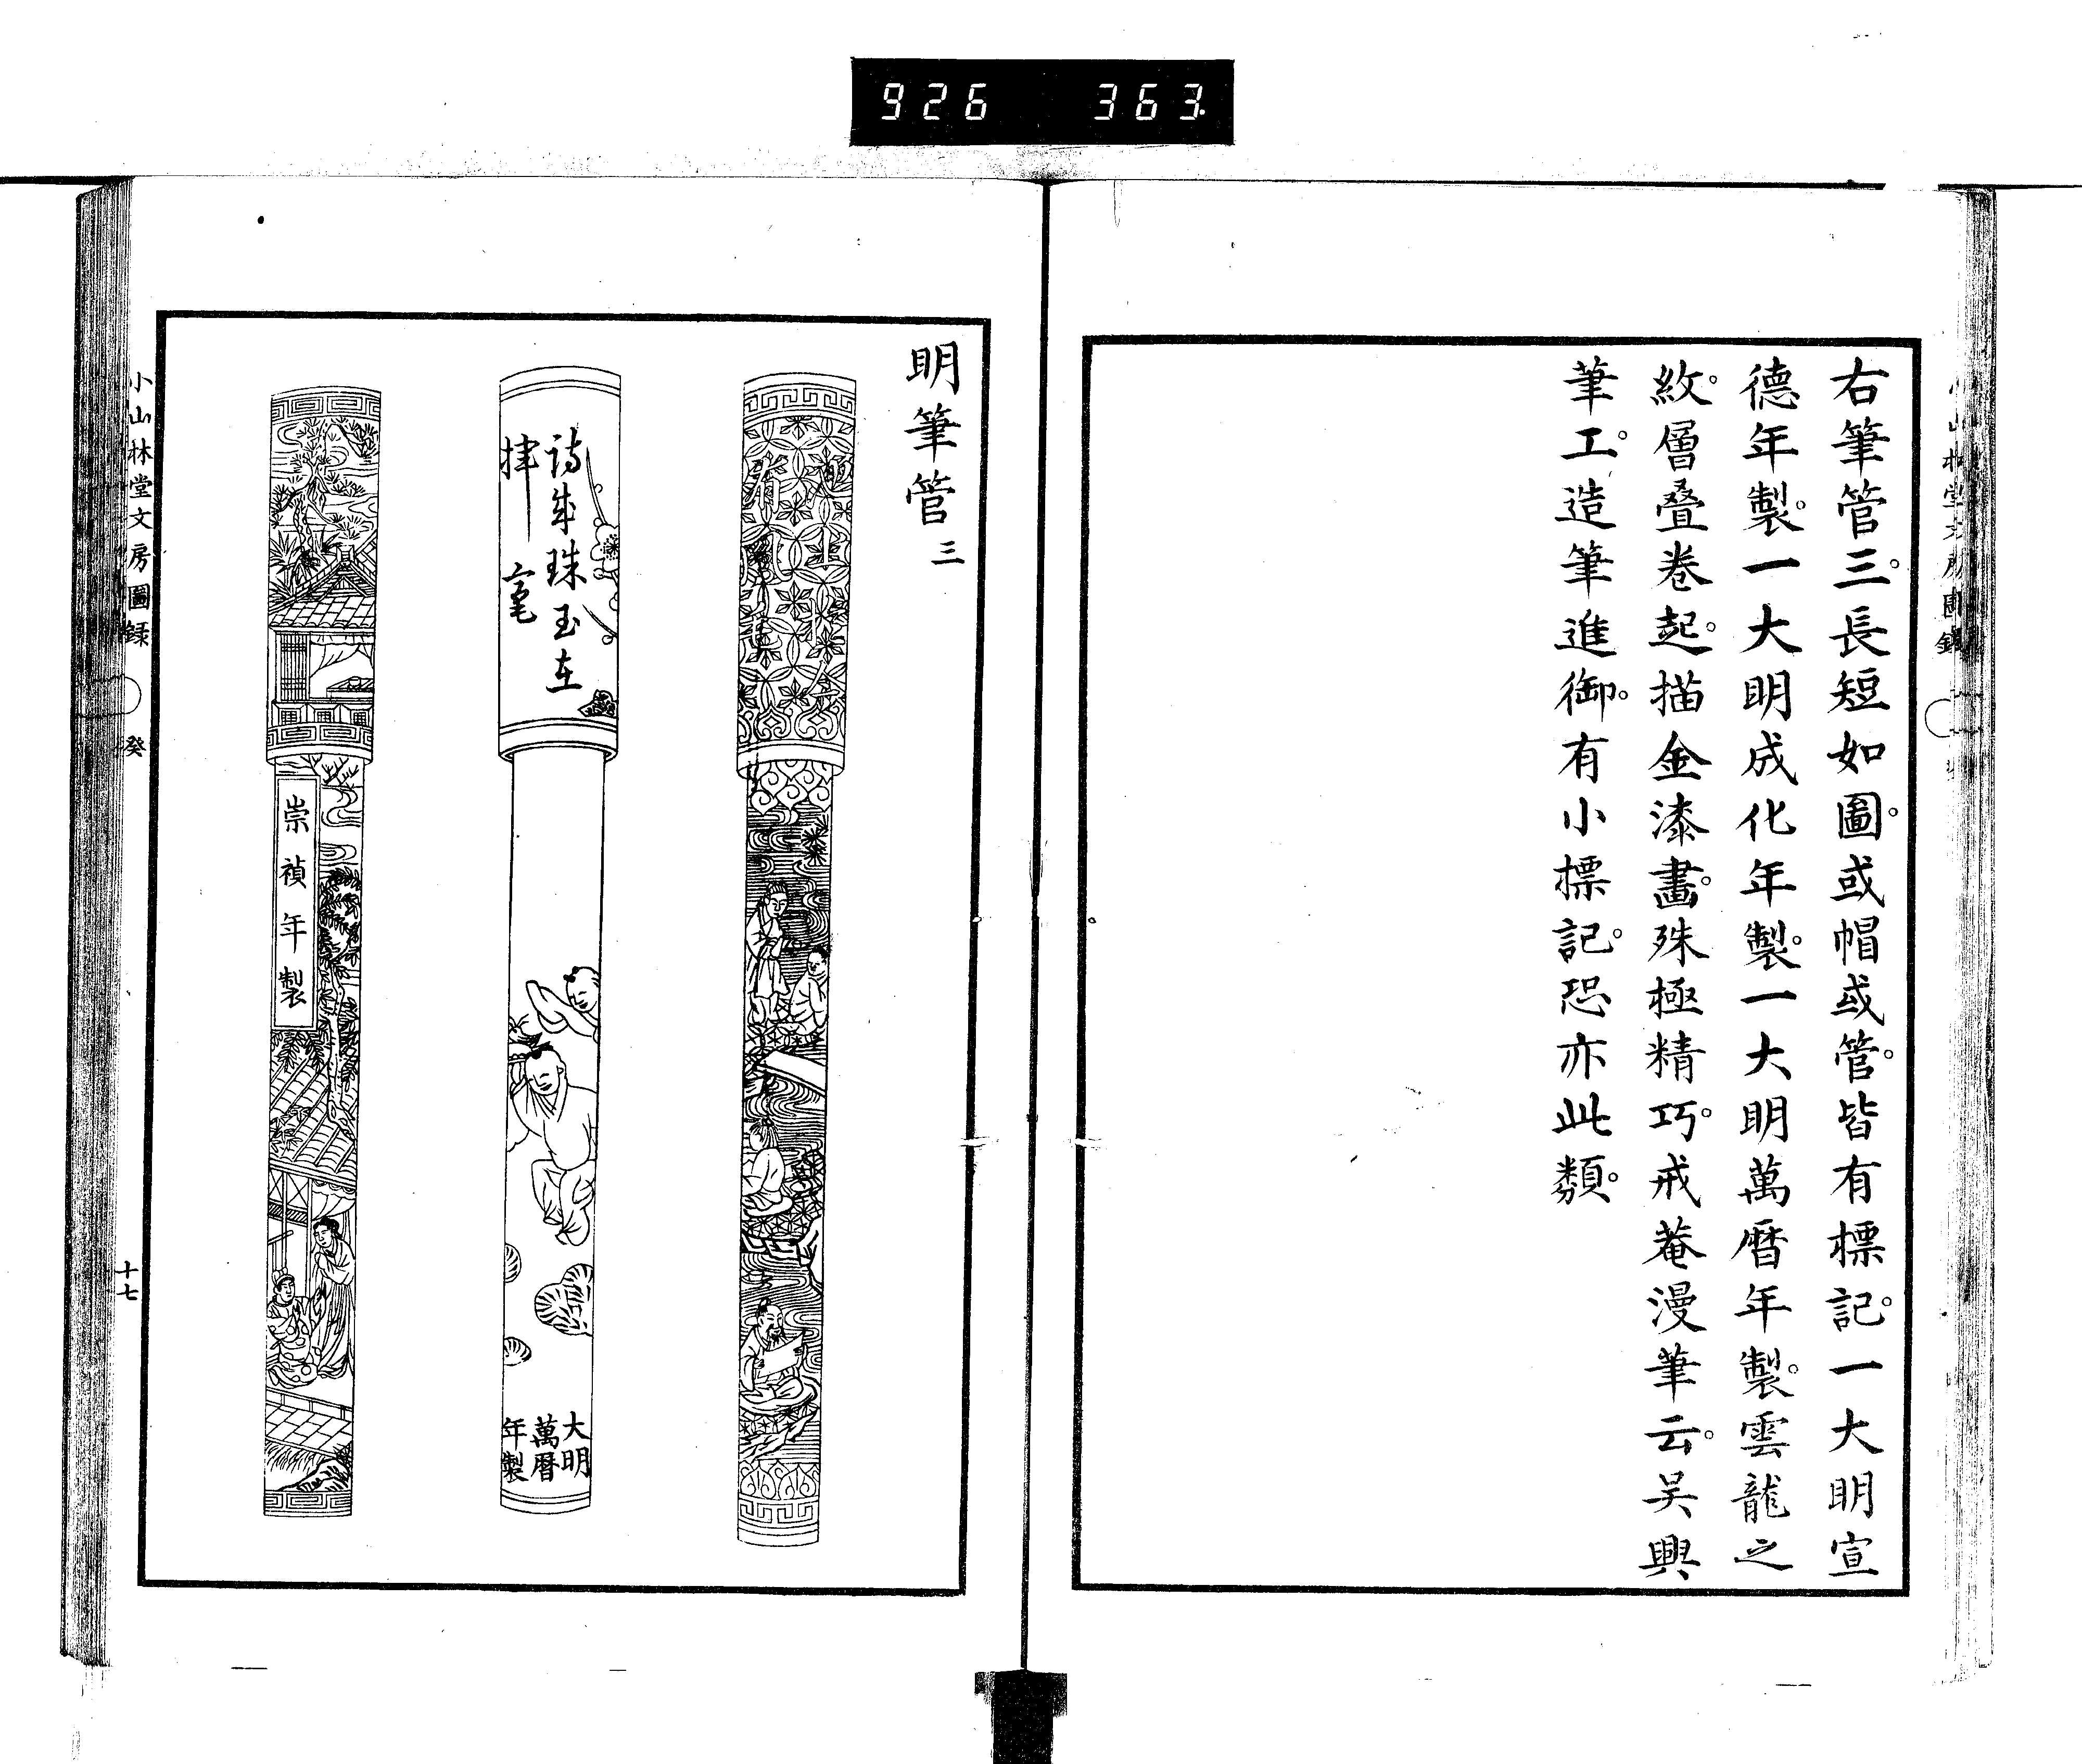 926 363
右筆管三。長短如圖。或帽或管。皆有標記。一大明宣
德年製。一大明成化年製。一大明萬曆年製。雲龍之
紋。層疊卷起。描金漆畫。殊極精巧。戒菴漫筆云。吴興
筆工。造筆進御。有小標記。恐亦此類。
明筆管 三
詩成珠玉在
揮毫
大明
萬曆
年製
崇禎年製
小山林堂文房圖録 癸 十七